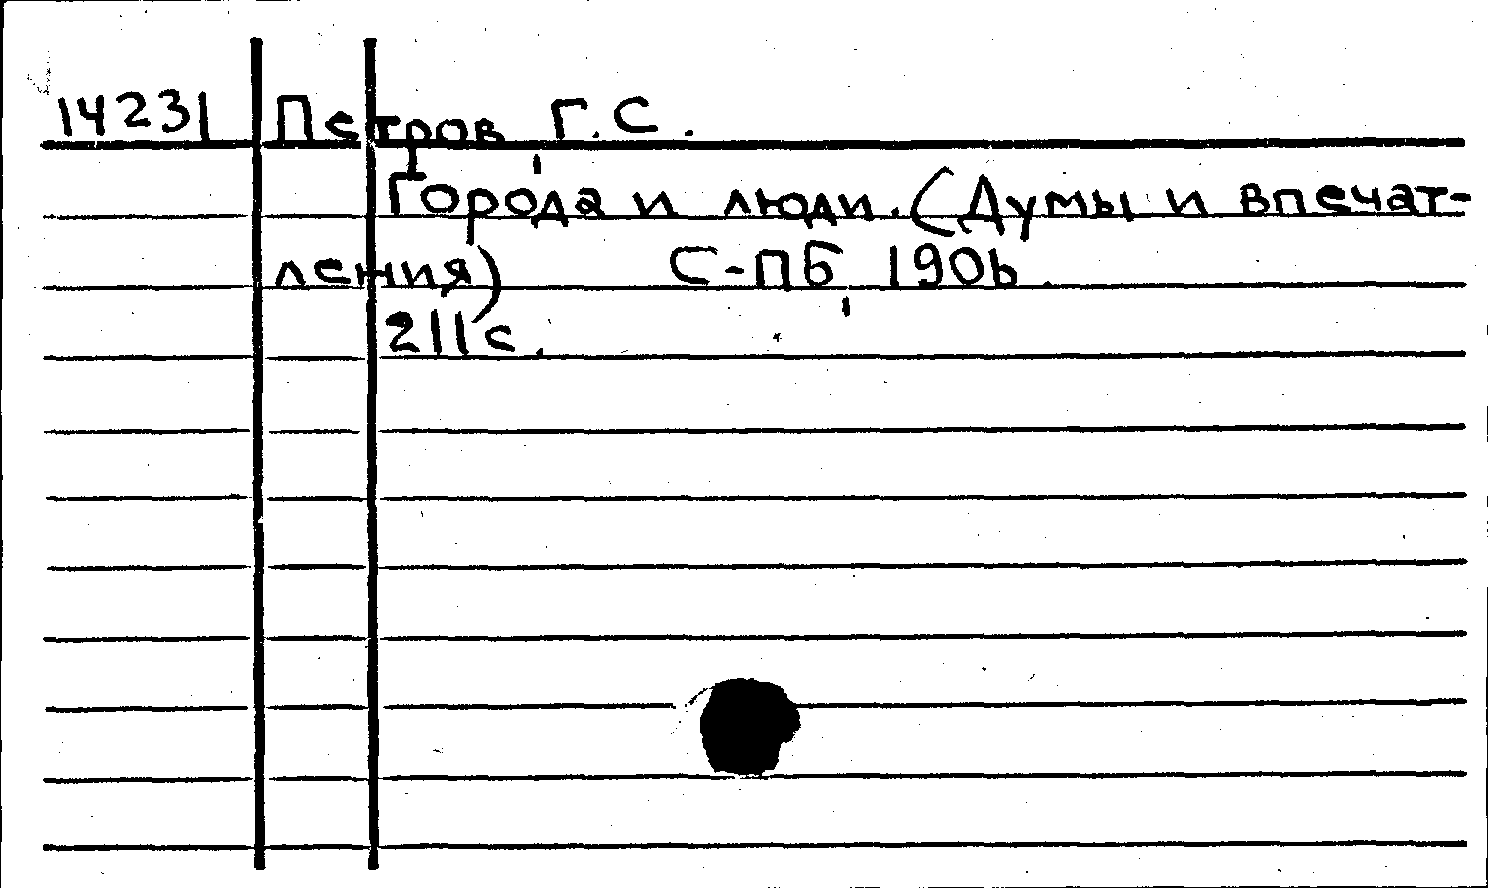 14231 Петров, Г.С.
Города и люди. (Думы и впечат-
ления) С-ПБ, 1906.
211с.